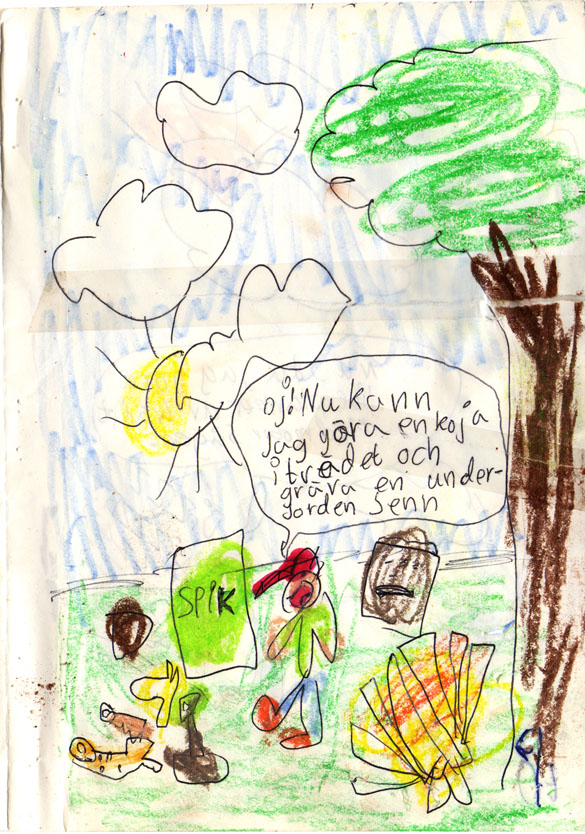 oj! Nu kann
jag göra en koja
i trädet och
gräva en under-
jorden senn
SPIK